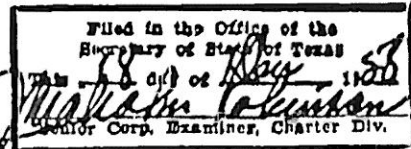 Filed in the Office of the
Secretary of State of Texas
This 18 day of Nov 1953
Senior Corp. Examiner, Charter Div.